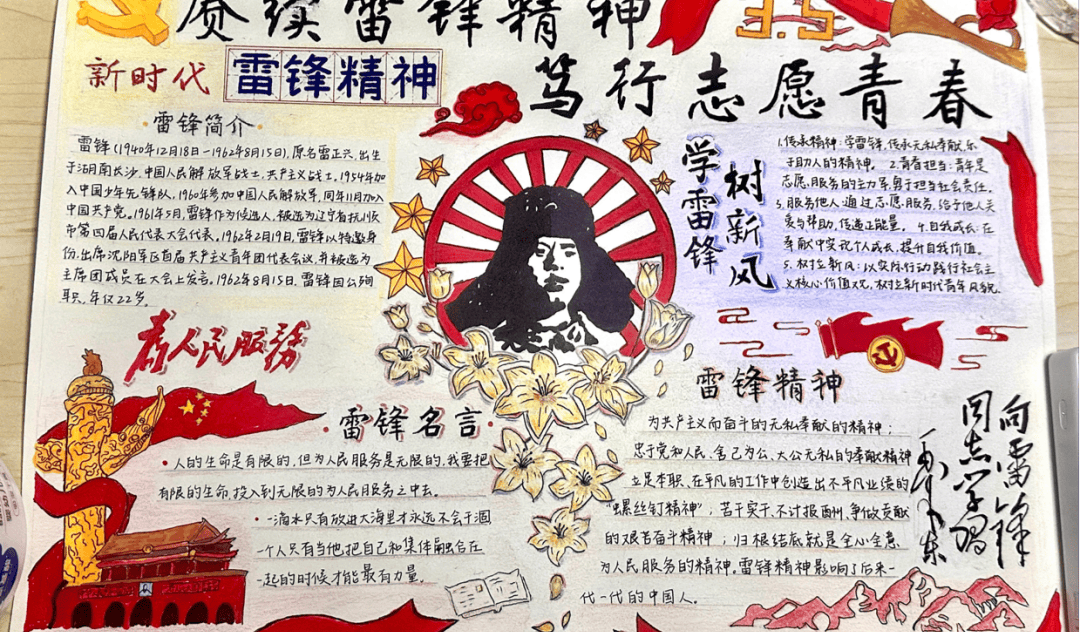 赓续雷锋精神
3.5
新时代 雷锋精神
笃行志愿青春
雷锋简介
雷锋(1940年12月18日-1962年8月15日),原名雷正兴,出生
于湖南长沙,中国人民解放军战士,共产主义战士,1954年加
入中国少年先锋队,1960年参加中国人民解放军,同年11月加入
中国共产党。1961年5月,雷锋作为候选人,被选为辽宁省抚顺
市第四届人民代表大会代表。1962年2月19日,雷锋以特邀身
份,出席沈阳军区首届共产主义青年团代表会议,并被选为
主席团成员在大会上发言。1962年8月15日,雷锋因公殉
职,年仅22岁。
学雷锋
树新风
1.传承精神:学雷锋,传承无私奉献,乐
于助人的精神。 2.青春担当:青年是
志愿服务的主力军,勇于担当社会责任。
3.服务他人:通过志愿服务,给予他人关
爱与帮助,传递正能量。 4.自我成长:在
奉献中实现个人成长,提升自我价值。
5.树立新风:以实际行动践行社会主
义核心价值观,树立新时代青年风貌。
为人民服务
雷锋名言
·人的生命是有限的,但为人民服务是无限的,我要把
有限的生命,投入到无限的为人民服务之中去。
·一滴水只有放进大海里才永远不会干涸
一个人只有当他把自己和集体融合在
一起的时候才能最有力量。
雷锋精神
为共产主义而奋斗的无私奉献的精神;
忠于党和人民、舍己为公、大公无私的奉献精神
立足本职、在平凡的工作中创造出不平凡业绩的
“螺丝钉精神”;苦干实干、不计报酬、争做贡献
的艰苦奋斗精神;归根结底就是全心全意
为人民服务的精神。雷锋精神影响了后来一
代一代的中国人。
向雷锋
同志学习
毛泽东